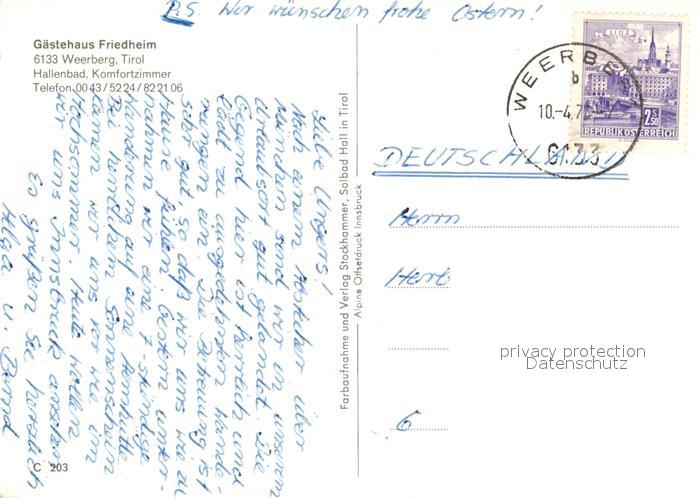 P.S. Wir wünschen frohe Ostern!
Gästehaus Friedheim
6133 Weerberg, Tirol
Hallenbad, Komfortzimmer
Telefon 0043/5224/822106
Liebe Ungers!
Nach einem Abstecher über
München sind wir in unserem
Urlaubsort gut gelandet. Die
Gegend hier ist herrlich und
lädt zu ausgedehnten Wande-
rungen ein. Die Betreuung ist
sehr gut, so daß wir uns wie zu
Hause fühlen. Gestern unter-
nahmen wir eine 7-stündige
Wanderung auf eine
Bei herrlichem Sonnenschein
kamen wir uns vor wie im
Hochsommer. Heute wollen
wir uns Innsbruck ansehen.
Es grüßen Sie herzlich
Helga u. Bernd
C 203
Farbaufnahme und Verlag Stockhammer, Solbad Hall in Tirol
Alpina Offsetdruck Innsbruck
LINZ
2.50
REPUBLIK ÖSTERREICH
WEERBE
b
10.-4.7
6133
DEUTSCHLAND
Herrn
Herb
6
privacy protection
Datenschutz